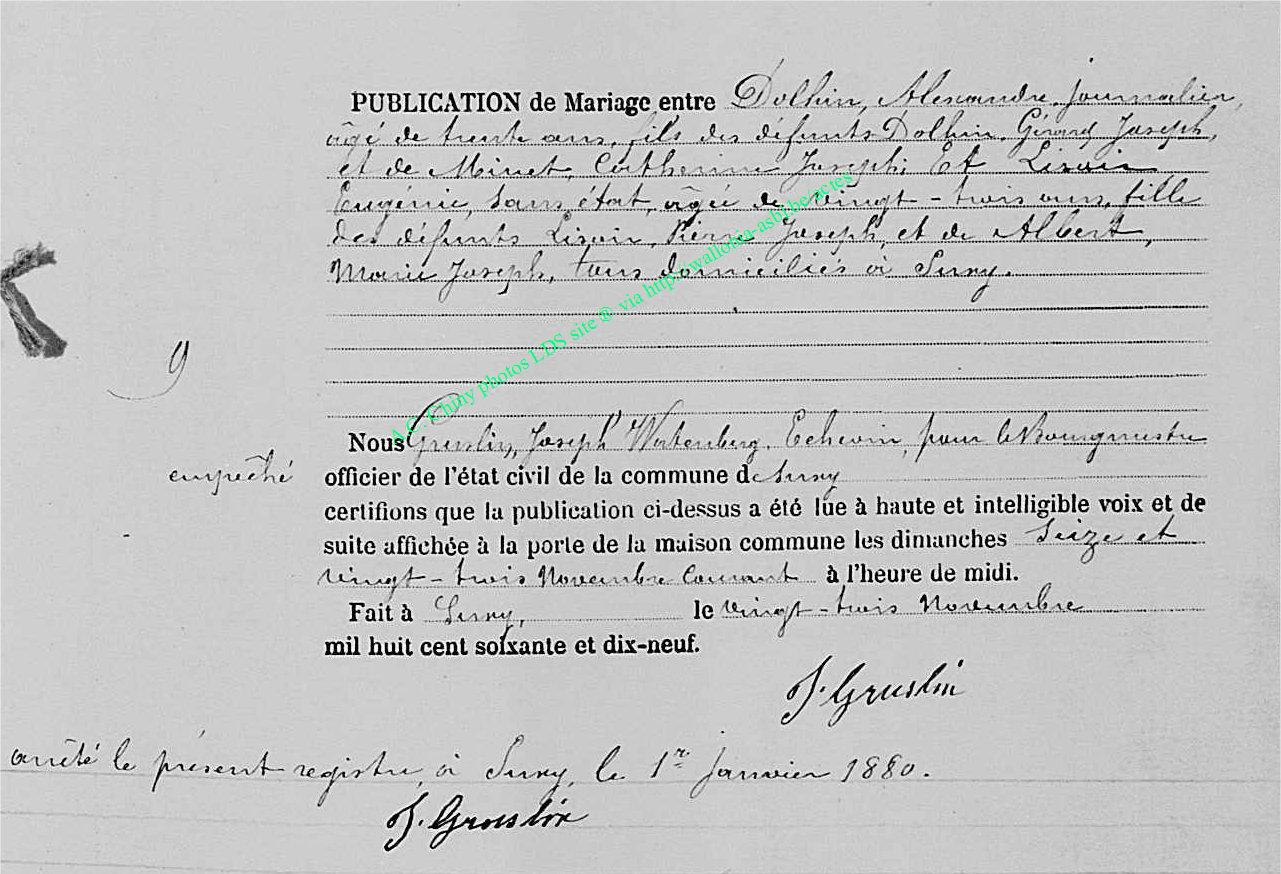 PUBLICATION de Mariage entre Dolhin, Alexandre, journalier,
âgé de trente ans, fils des défunts Dolhin, Gérard Joseph,
et de Minet, Catherine Joseph, Et Lisoir
Eugénie, sans état, âgée de vingt-trois ans, fille
des défunts Lisoir, Pierre Joseph, et de Albert,
Marie Joseph, tous domiciliés à Suxy.
9
Nous Gruslin, Joseph Echevin, pour le Bourgmestre
empêché
officier de l'état civil de la commune de Suxy
certifions que la publication ci-dessus a été lue à haute et intelligible voix et de
suite affichée à la porte de la maison commune les dimanches Seize et
vingt-trois Novembre Courant à l'heure de midi.
Fait à Suxy, le vingt-trois Novembre
mil huit cent soixante et dix-neuf.
J. Gruslin
arrêté le présent registre, à Suxy, le 1r Janvier 1880.
J. Gruslin
A.C. Chiny photos LDS site ® via http://wallonia-asbl.be/actes